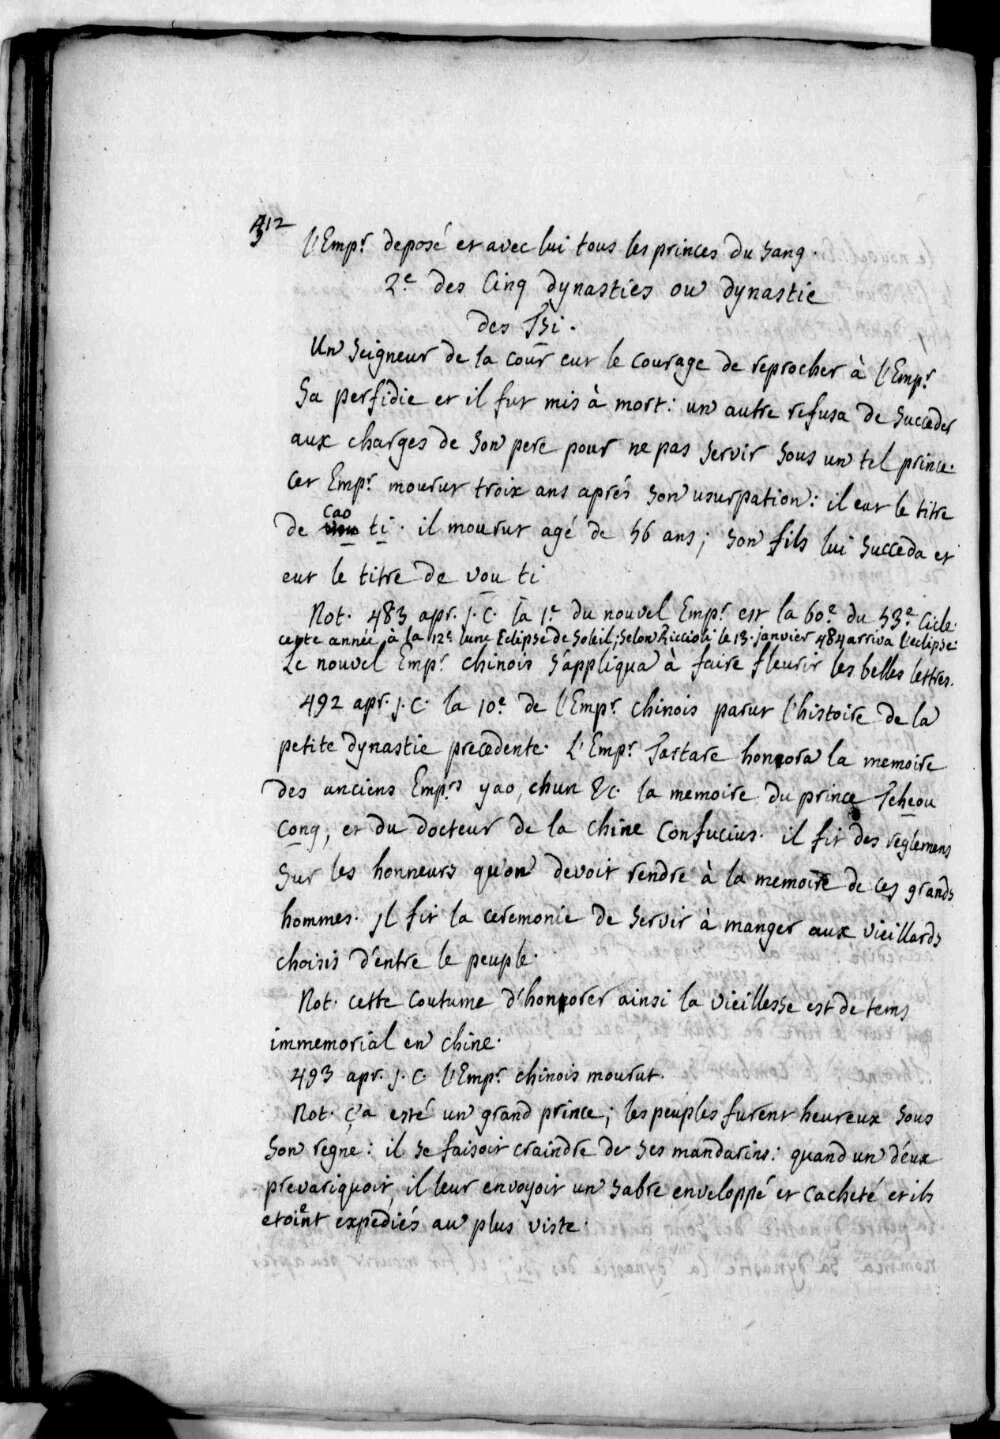 312
l'Emp.r deposé et avec lui tous les princes du sang.
2.e des Cinq dynasties ou dynastie
des Tsi.
Un seigneur de la cour eut le courage de reprocher à l'Emp.r
sa perfidie et il fut mis à mort: un autre refusa de succeder
aux charges de son pere pour ne pas servir sous un tel prince.
cet Emp.r mourut troix ans aprés son usurpation: il eut le titre
de cao ti. il mourut agé de 56 ans; son fils lui succeda et
eut le titre de vou ti
Not. 483 apr. J. C. la 1.e du nouvel Emp.r est la 60.e du 53.e Cicle.
cette année, à sa 12.e lune Eclipse de Soleil; selon Riccioli le 13. janvier 484 arriva l'eclipse.
Le nouvel Emp.r chinois s'appliqua à faire fleurir les belles lettres.
492 apr. J. C. la 10.e de l'Emp.r chinois parut l'histoire de la
petite dynastie precedente. L'Emp.r Tartare honora la memoire
des anciens Emp.rs yao, chun &c. la memoire du prince Tcheou
cong, et du docteur de la chine Confucius. il fit des reglemens
sur les honneurs qu'on devoit rendre à la memoire de ces grands
hommes. Il fit la ceremonie de servir à manger aux vieillards
choisis d'entre le peuple.
Not. cette coutume d'honorer ainsi la vieillesse est de tems
immemorial en chine.
493 apr. J. C. l'Emp.r chinois mourut.
Not. ç'a esté un grand prince; les peuples furent heureux sous
son regne: il se faisoit craindre de ses mandarins: quand un d'eux
prevariquoit il leur envoyoit un sabre enveloppé et cacheté et ils
etoient expediés au plus viste.